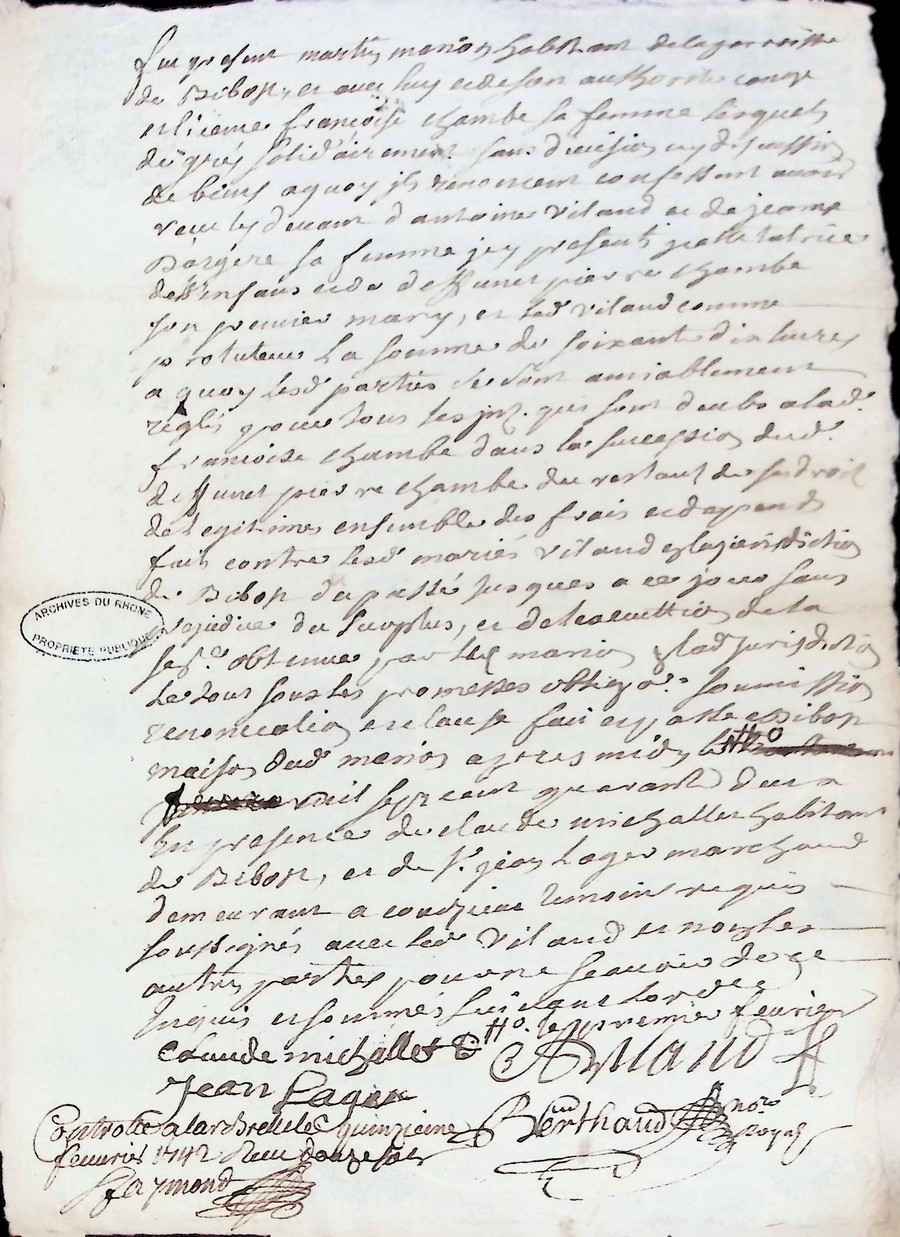 fut present martin marion habitant de la parroisse
de Bibost, et avec luy et de son authorité congé
et licence francoise chambe sa femme lesquels
de grés solid'airement sans division ny discussion
de biens a quoy ils renoncent confessent avoir
receu cy devant d'antoine Vilaud et de jeanne
Bergere sa femme jcy presents jcelle tutrice
des Enfans et de deffunct pierre chambe
son premier mary, et led. vilaud comme
protuteur La somme de soixant dix livres
a quoy lesd. parties se sont amiablement
réglés pour tous les jnt. qui sont deubs a lad.
francoise chambe dans la succession dud.
deffunct pierre chambe du restant de ses droit
de legitimes ensemble des frais et depends
fait contre lesd. mariés Vilaud en la jurisdiction
de Bibost du passé jusques a ce jour sans
prejudice du surplus, et de l'execution de la
sent.e obtenue par led. marion en lad. jurisdiction
le tout sous les promesses obligaõ.s soumission
renonciation et clause fait et passé a Bibost
maison dud. marion apres midy le #o
mil sept cent quarant deux
En presence de claude michallet habitant
de Bibost, et de s.r jean Lager marchand
demeurant a courzieu temoins requis
soussignés avec led. Vilaud et non les
autres parties pour ne scavoir de ce
Enquis et sommés suivant lordce
#o. le premier fevrier
claude michallet
A Vilaud
Jean Lager
Berthaud no.re
Royal
Controllé a larbresle le quinzieme
fevvrier 1742 Receu douze sols
Ferymond
ARCHIVES DU RHONE
PROPRIETE PUBLIQUE